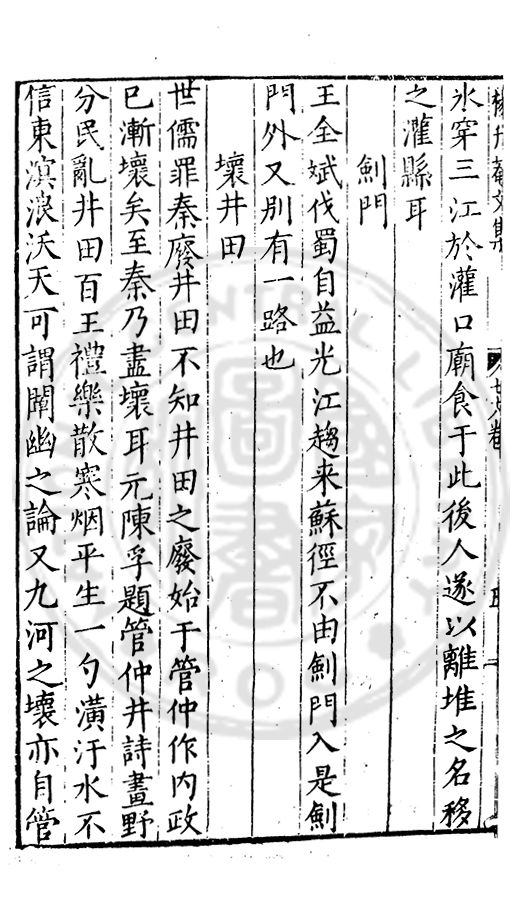 氷穿三江於灌口廟食于此後人遂以離堆之名移
之灌縣耳
劍門
王全斌伐蜀自益光江趨来蘇徑不由劍門入是劍
門外又別有一路也
壞井田
世儒罪秦廢井田不知井田之廢始于管仲作内政
已漸壞矣至秦乃盡壞耳元陳孚題管仲井詩畫野
分民亂井田百王禮樂散寒烟平生一勺潢汙水不
信東溟浪沃天可謂闡幽之論又九河之壞亦自管